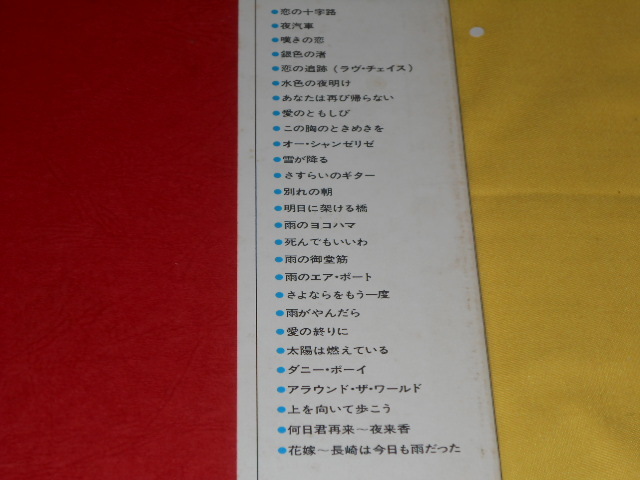 ●恋の十字路
●夜汽車
●嘆きの恋
●銀色の渚
●恋の追跡（ラヴ・チェイス）
●水色の夜明け
●あなたは再び帰らない
●愛のともしび
●この胸のときめきを
●オー・シャンゼリゼ
●雪が降る
●さすらいのギター
●別れの朝
●明日に架ける橋
●雨のヨコハマ
●死んでもいいわ
●雨の御堂筋
●雨のエア・ポート
●さよならをもう一度
●雨がやんだら
●愛の終りに
●太陽は燃えている
●ダニー・ボーイ
●アラウンド・ザ・ワールド
●上を向いて歩こう
●何日君再来～夜来香
●花嫁～長崎は今日も雨だった